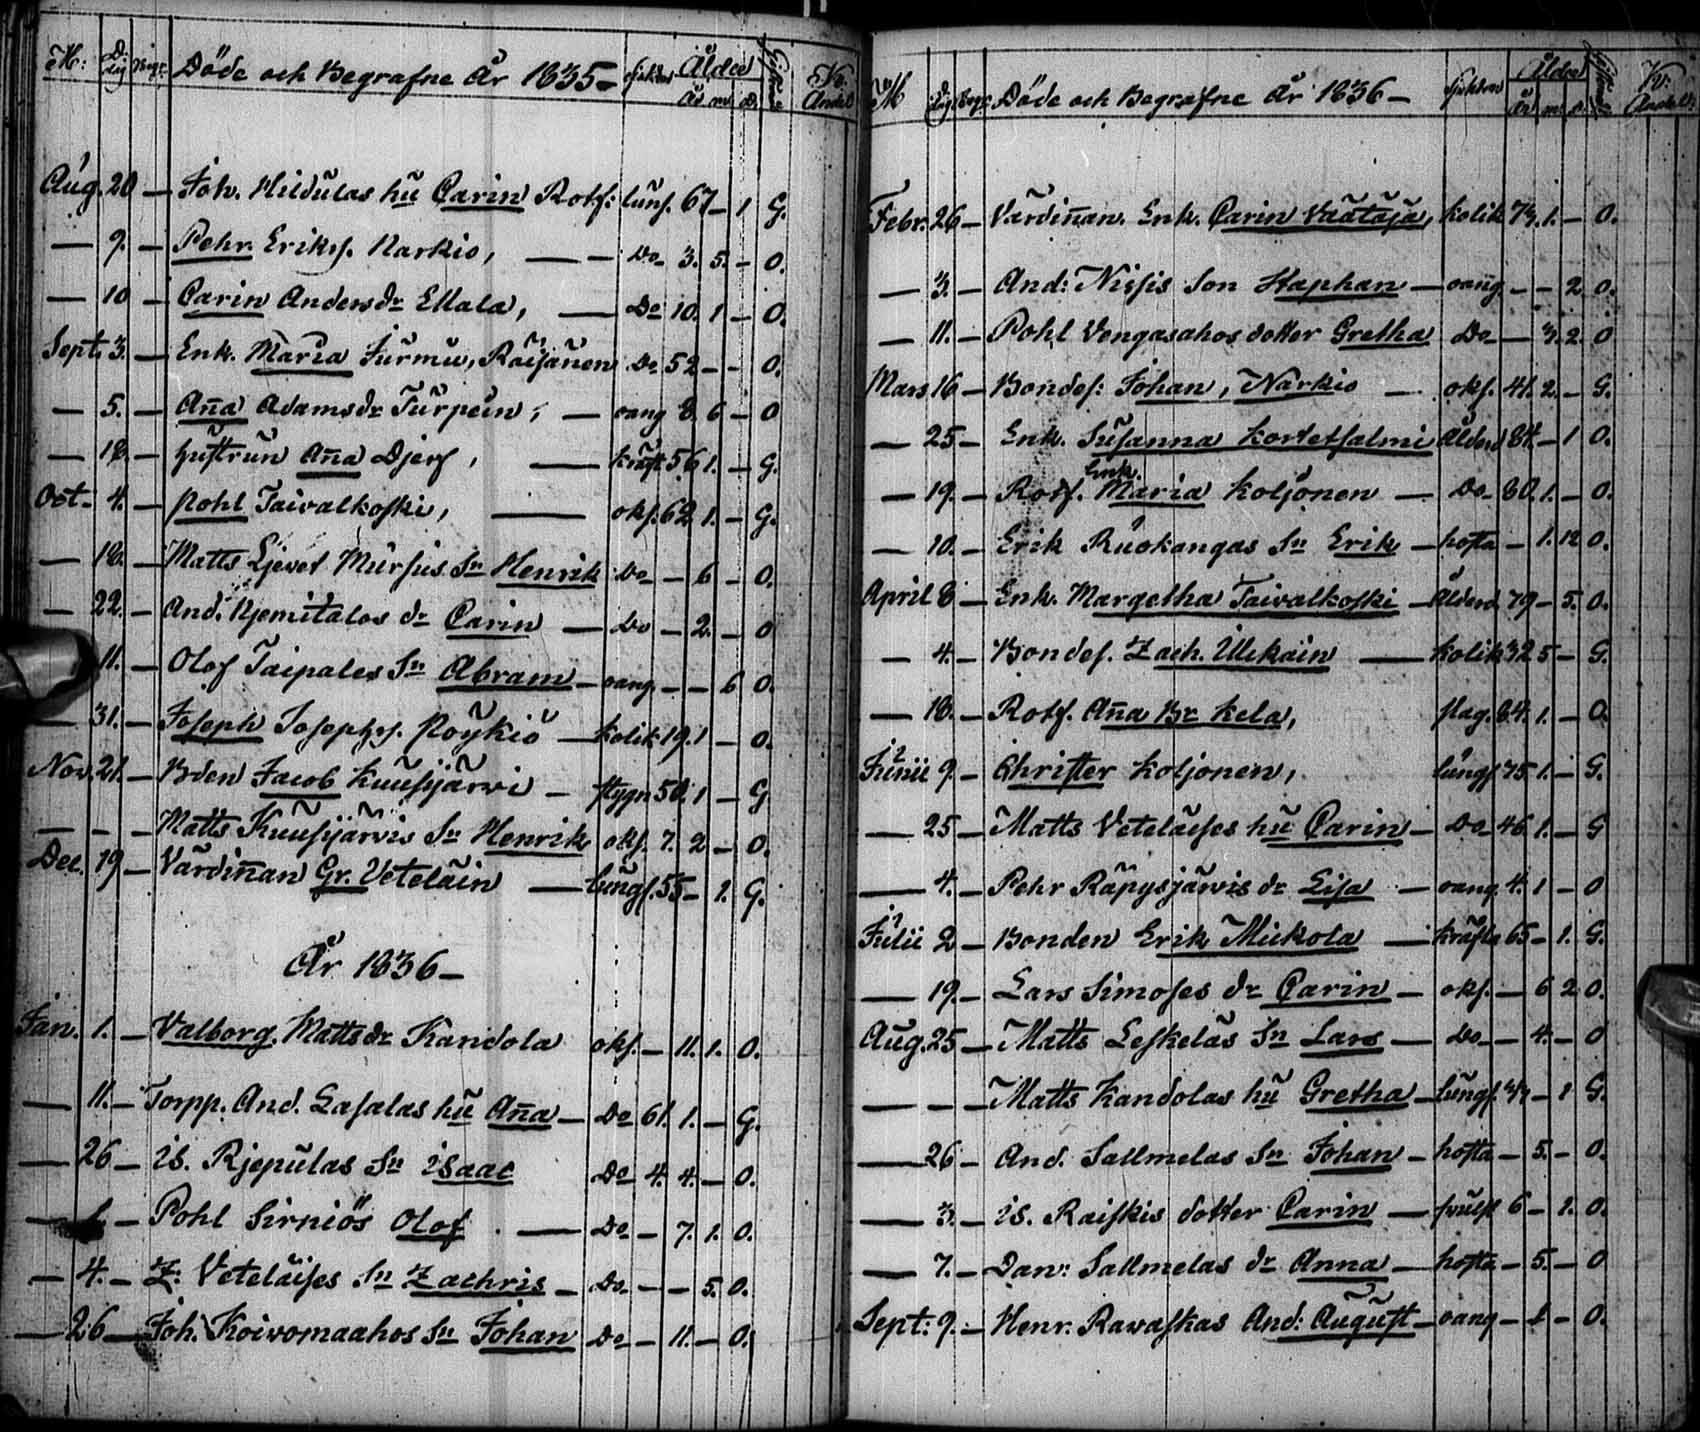 M: Dag Begr. Döde och Begrafne År 1835 – Sjukdom Ålder År m. d. Kv. Andel
Aug. 20 – Joh. Hildulas hu Carin Rotf: lungs. 67 – 1 G.
— 9. – Pehr Eriks. Karkio, — Do 3. 5. – O.
— 10 – Carin Andersdr Ellala, — Do 10. 1 – O.
Sept. 3. – Enk. Maria Jurmu, Räisänen Do 52 – – O.
— 5. – Aña Adamsdr Turpein, — oang 8. 6 – O
— 18. – hustrun Aña Djerf, — kräft. 56 1. – G.
Oct. 4. – Pohl Taivalkoski, — oks. 62 1. – G.
— 18. – Matts Ljevet Mursus Sn Henrik Do – 6 – O.
— 22. – And. Kjemitalos dr Carin — Do – 2. – O
11. – Olof Taipales Sn Abram – oang. – – 6 O.
— 31. – Joseph Josephs. Pöykiö – kolik. 19. 1 – O.
Nov. 21. – Bden Jacob Kuusijärvi – stygn 50. 1 – G
— – – Matts Kuusijärvis Sn Henrik oks. 7. 2 – O.
Dec. 19 – Värdiñan Gr. Veteläin — lungs. 55 – 1. G.
År 1836 –
Jan. 1. – Valborg Mattsdr Kandola oks. – 11. 1. O.
— 11. – Torpp. And. Lasalas hu Aña – Do 61. 1. – G.
— 26 – is. Rjepulas Sn isaac Do 4. 4. – O.
— – Pohl Sirniös Olof — Do – 7. 1. O.
— 4. – Z: Veteläises Sn Zachris – Do – – 5. O.
— 26 – Joh. Koivomaahos Sn Johan – Do – 11. – O.
M Dag Begr. Döde och Begrafne År 1836 – Sjukdom Ålder År m. d. Kv: Andel:
Febr. 26 – Värdiñan. Enk. Carin Väätäjä, kolik 73. 1. – O.
— 3. – And: Nissis Son Staphan – oang – – 2 O.
— 11. – Pohl Vengasahos dotter Gretha Do – 3. 2. O
Mars 16 – Bondes: Johan, Narkio — oks. 41. 2. – G.
— 25 – Enk. Susanna Kortetsalmi Ålderd 84. – 1 O.
— 19. – Rotf. Enk. Maria Koljonen – Do 80. 1. – O.
— 10. – Erik Ruokangas Sn Erik – hosta – 1. 12 O.
April 8 – Enk. Margetha Taivalkoski – Ålderd. 79 – 5. O.
— 4. – Bondes. Zach. Ulckäin — kolik 32 5 – G.
— 18. – Rotf. Aña Br Kela, slag. 84. 1. – O.
Junii 9 – Christer Koljonen, lungs. 75 1. – G.
— 25 – Matts Veteläises hu Carin – Do 46 1. – G
— 4. – Pehr Räpysjärvis dr Lisa – oang. 4. 1 – O
Julii 2 – Bonden Erik Mukola — kräfta 65 – 1. G.
— 19. – Lars Simoses dr Carin – oks. – 6 2 O.
Aug. 25 – Matts Leskeläs Sn Lars – Do – 4. – O
— – – Matts Kandolas hu Gretha – lungs. 34 – 1 G.
— 26 – And. Sallmelas Sn Johan – hosta – 5. – O.
— 3. – is. Raiskis dotter Carin – svulst 6 – 1. O.
— 7. – Dan: Sallmelas dr Anna – hosta – 5. – O
Sept: 9. – Henr. Ravaskas And: August – oang – 1 – O.